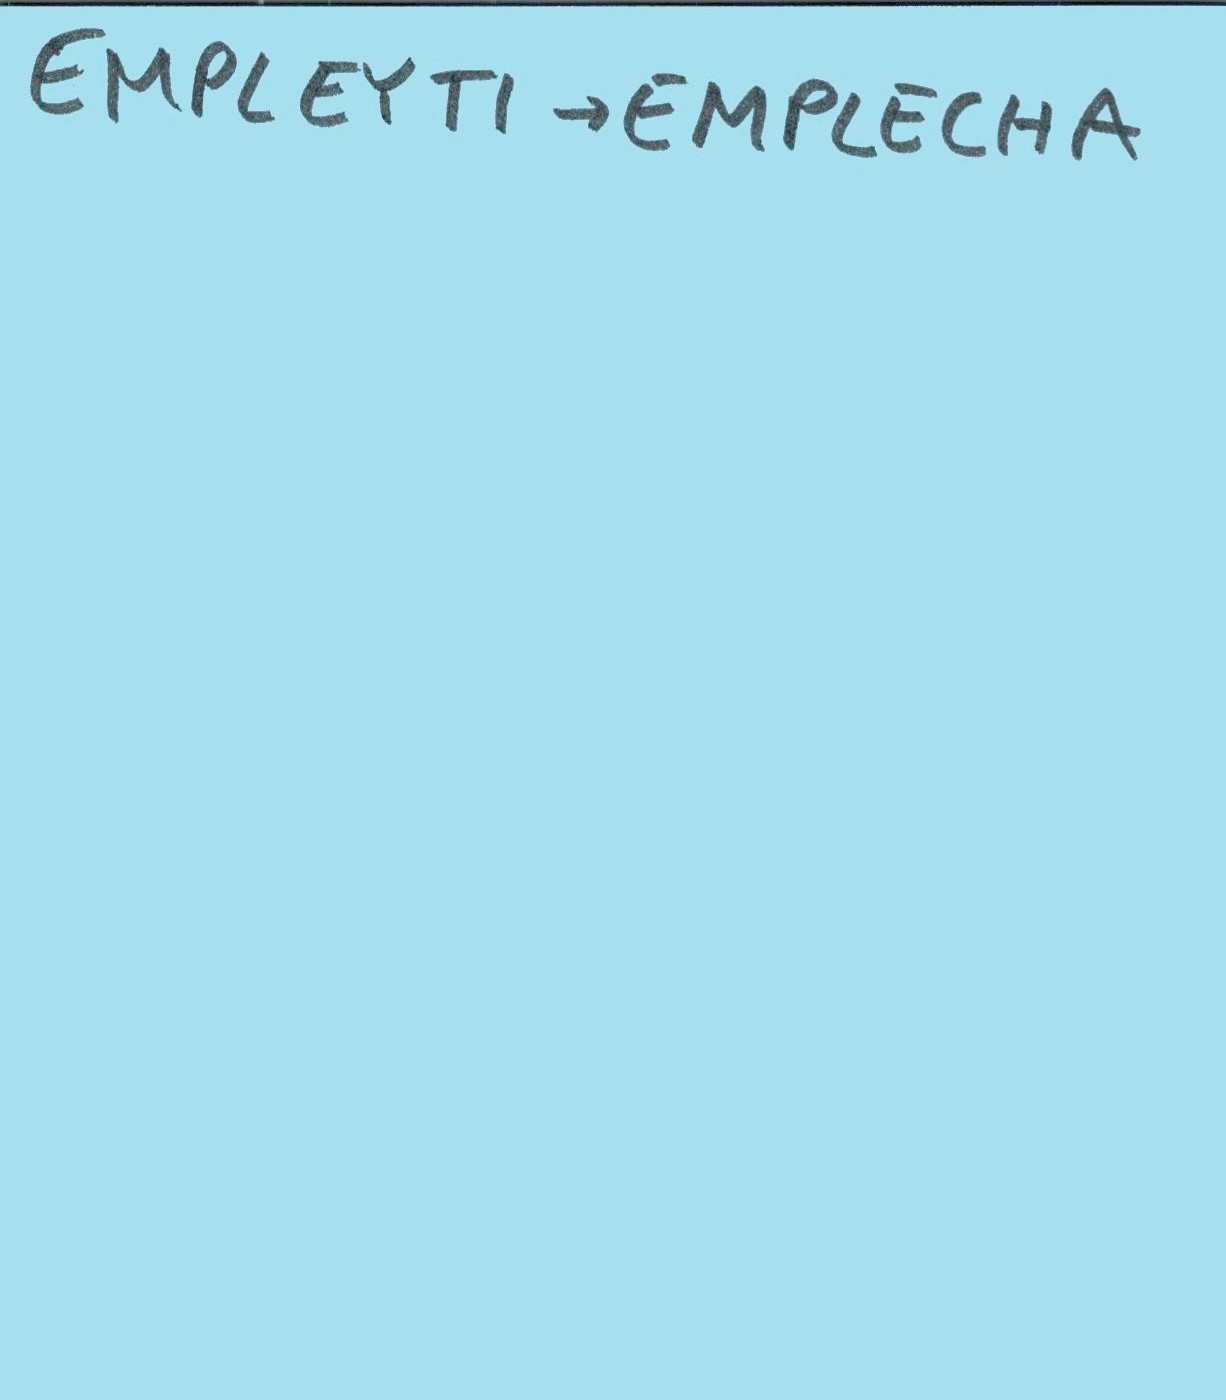 EMPLEYTI → EMPLECHA